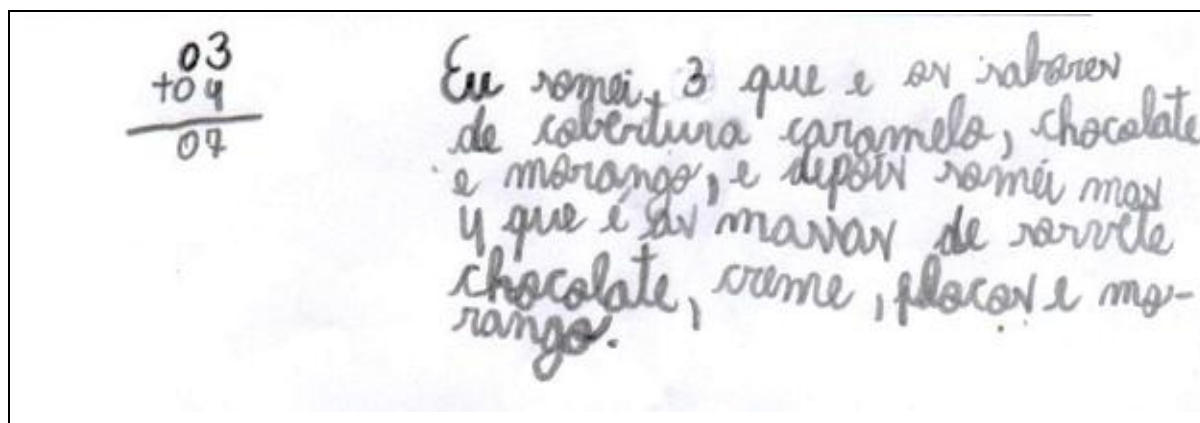 03
+04
07
Eu somei 3 que e os sabores
de cobertura caramelo, chocolate
e morango, e depois somei mas
4 que é as massas de sorvete
chocolate, creme, flocos e mo-
rango.